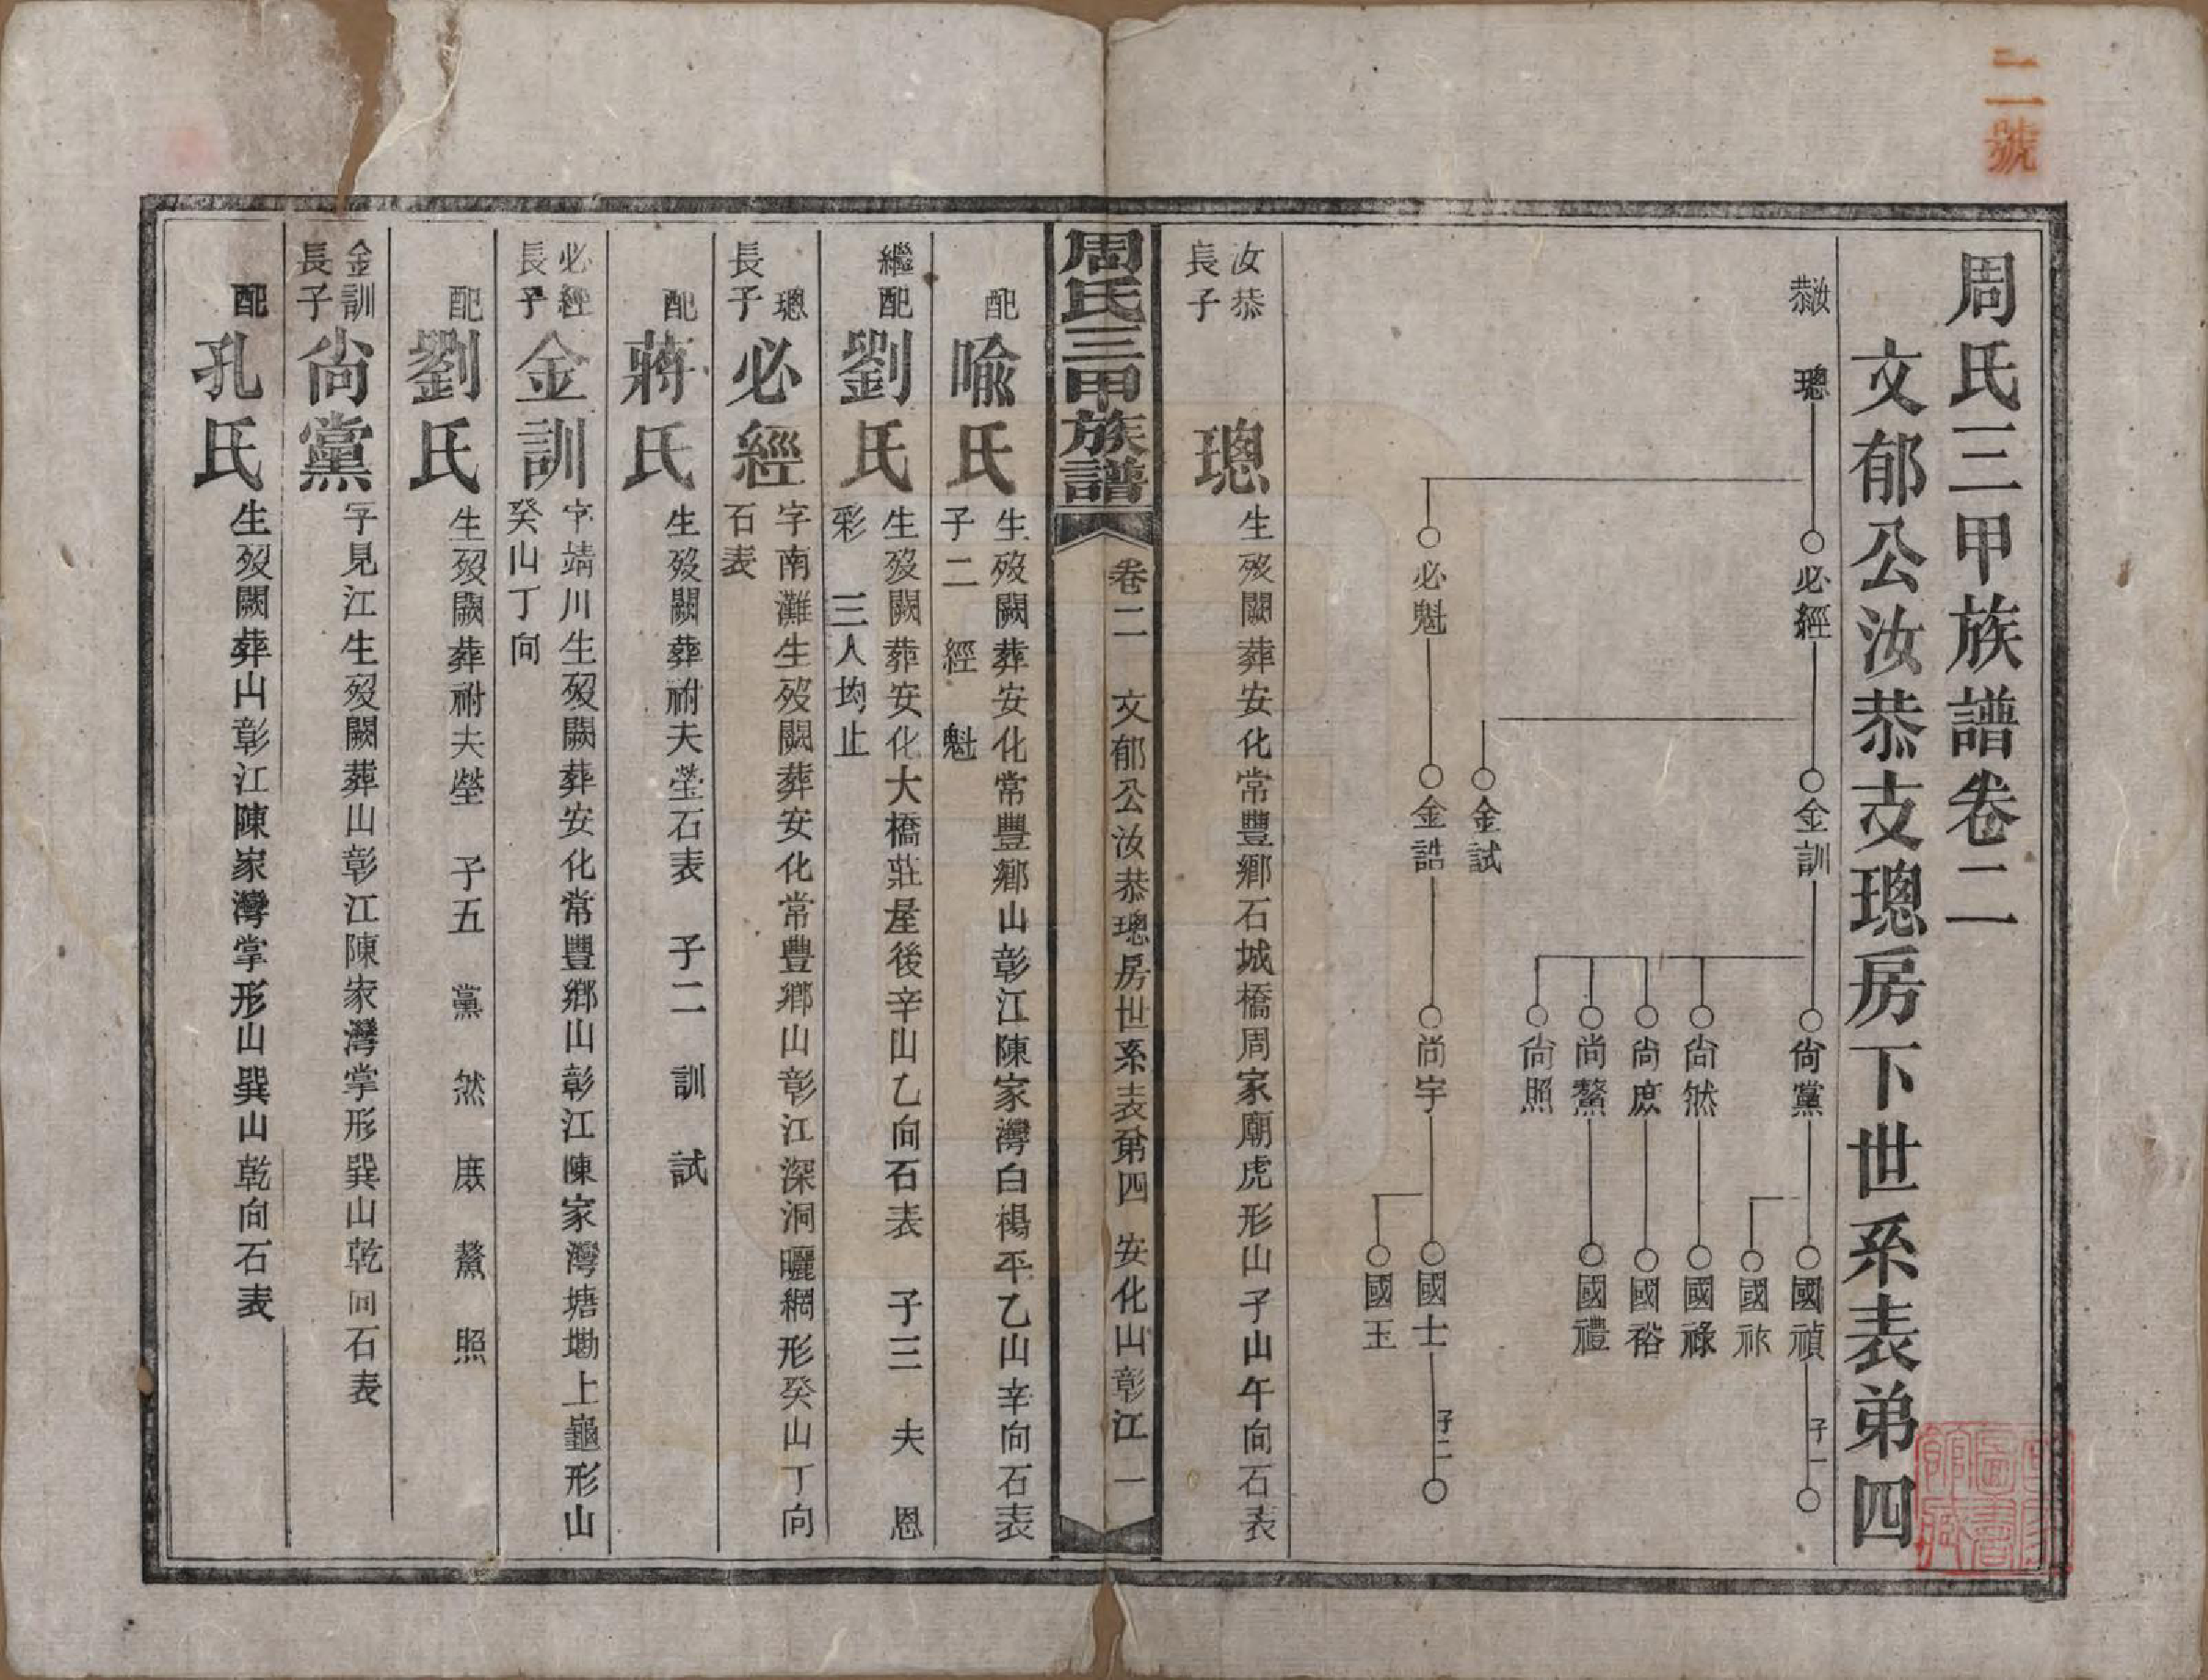 二號
周氏三甲族譜卷二
文郁公汝恭支璁房下世系表弟四
汝恭 璁 必經 金訓 尚黨 國禎 子一
國祢
尚然 國祿
尚庶 國裕
尚鰲 國禮
尚照
金試
必魁 金誥 尚宇 國士 子二
國玉
汝恭
長子
璁
生歿闕葬安化常豐鄉石城橋周家廟虎形山子山午向石表
周氏三甲族譜 卷二 文郁公汝恭璁房世系表第四 安化山彰江 一
配
喻氏
生歿闕葬安化常豐鄉山彰江陳家灣白楊平乙山辛向石表
子二 經 魁
繼配
劉氏
生歿闕葬安化大橋莊屋後辛山乙向石表 子三 夫 恩
彩 三人均止
璁
長子
必經
字南灘生歿闕葬安化常豐鄉山彰江深洞曬網形癸山丁向
石表
配
蔣氏
生歿闕葬祔夫塋石表 子二 訓 試
必經
長子
金訓
字靖川生歿闕葬安化常豐鄉山彰江陳家灣塘墈上龜形山
癸山丁向
配
劉氏
生歿闕葬祔夫塋 子五 黨 然 庶 鰲 照
金訓
長子
尚黨
字見江生歿闕葬山彰江陳家灣掌形巽山乾向石表
配
孔氏
生歿闕葬山彰江陳家灣掌形山巽山乾向石表